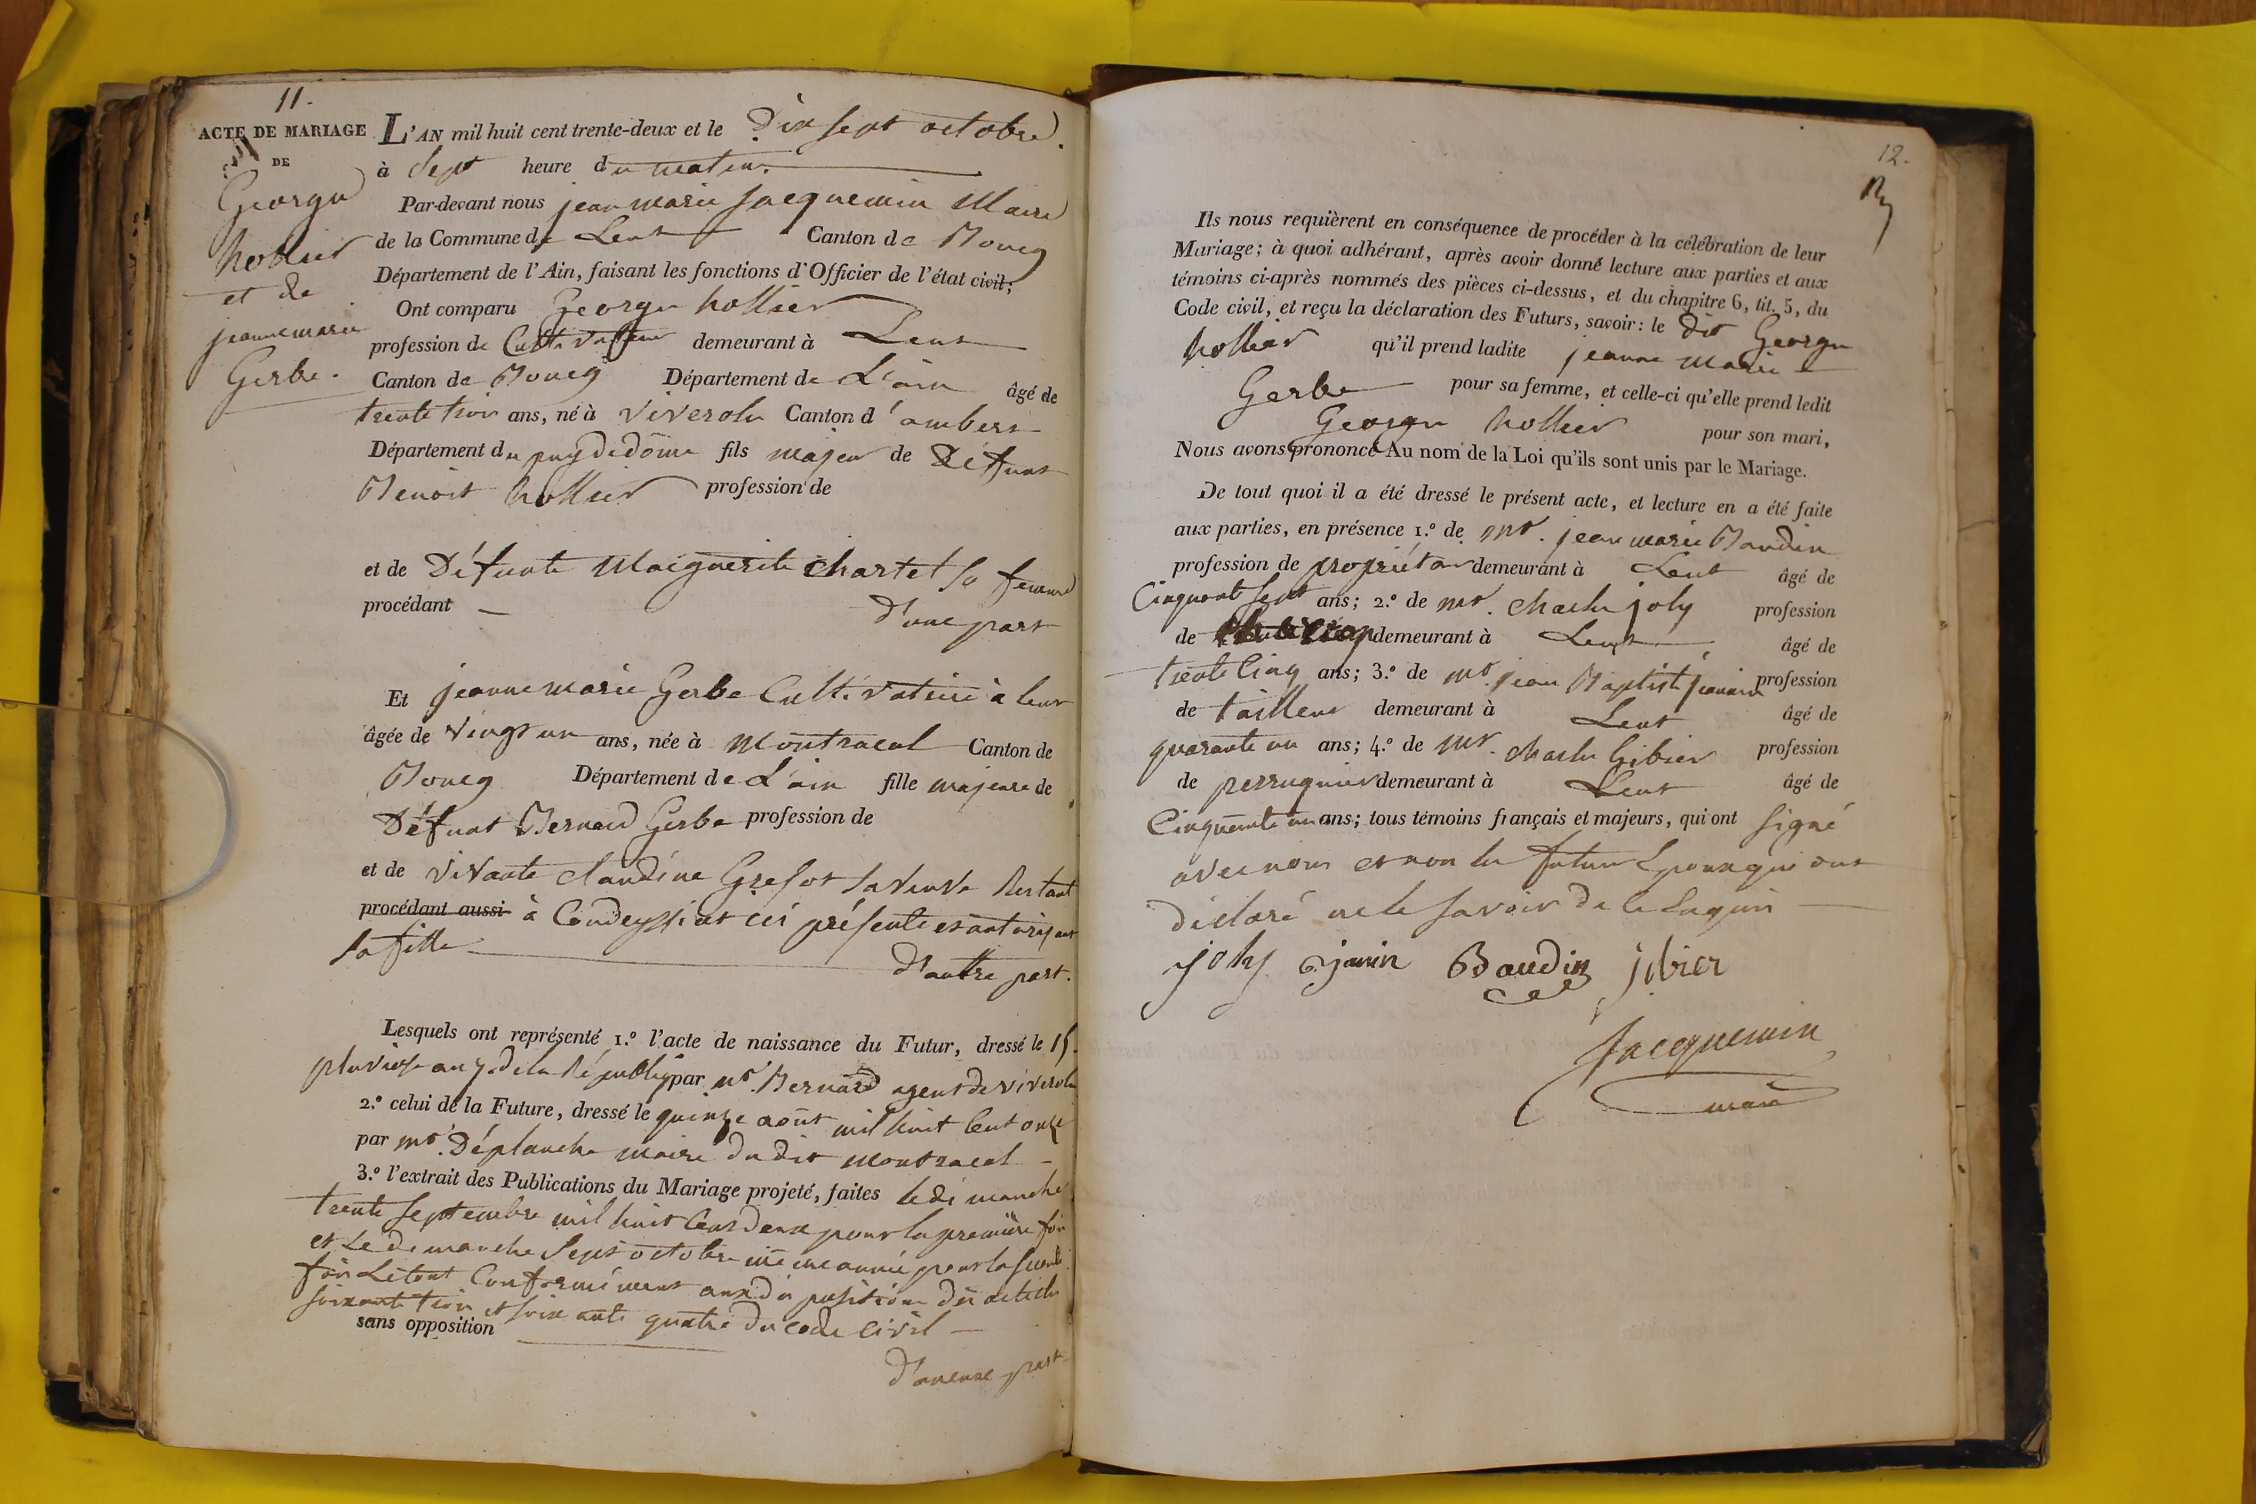 11.
ACTE DE MARIAGE
DE
George
hollier
et de
jeanne marie
Gerbe.
L'AN mil huit cent trente-deux et le Dix sept octobre.
à Sept heure du matin.
Par-devant nous jean marie Jacquemin Maire
de la Commune de Lent Canton de Bourg
Département de l'Ain, faisant les fonctions d'Officier de l'état civil;
Ont comparu George hollier
profession de Cultivateur demeurant à Lent
Canton de Bourg Département de L'ain âgé de
trente trois ans, né à viverols Canton d'ambers
Département du puy de dôme fils majeur de Défunt
Benoit hollier profession de
et de Défunte Marguerite Chartet sa femme
procédant d'une part
Et jeanne marie Gerbe Cultivatrice à lent
âgée de vingt un ans, née à Montracol Canton de
Bourg Département de L'ain fille majeure de
Défunt Bernard Gerbe profession de
et de vivante Claudine Grefot sa veuve Restant
procédant aussi à Condeyssiat ici présente et autorisant
sa fille d'autre part.
Lesquels ont représenté 1.° l'acte de naissance du Futur, dressé le 15
pluviose an 7. de la Répub. par mr. Bernard agent de viverols
2.° celui de la Future, dressé le quinze août mil huit Cent onze
par mr. Déplanche maire du dit montracol
3.° l'extrait des Publications du Mariage projeté, faites le dimanche
trente septembre mil huit Cent deux pour la première fois
et Le dimanche Sept octobre même année pour la seconde
fois Le tout Conformément aux dispositions des articles
soixante trois et soixante quatre du code civil
sans opposition
d'aucune part
12.
Ils nous requièrent en conséquence de procéder à la célébration de leur
Mariage; à quoi adhérant, après avoir donné lecture aux parties et aux
témoins ci-après nommés des pièces ci-dessus, et du chapitre 6, tit. 5, du
Code civil, et reçu la déclaration des Futurs, savoir: le dit George
hollier qu'il prend ladite jeanne marie
Gerbe pour sa femme, et celle-ci qu'elle prend ledit
George hollier pour son mari,
Nous avons prononcé Au nom de la Loi qu'ils sont unis par le Mariage.
De tout quoi il a été dressé le présent acte, et lecture en a été faite
aux parties, en présence 1.° de mr. jean marie Baudin
profession de propriétair demeurant à Lent âgé de
Cinquante Sept ans; 2.° de mr. Charles joly profession
de demeurant à Lent âgé de
trente Cinq ans; 3.° de mr. jean Baptiste jeanin profession
de tailleur demeurant à Lent âgé de
quarante un ans; 4.° de mr. Charles Gibier profession
de perruquier demeurant à Lent âgé de
Cinquante un ans; tous témoins français et majeurs, qui ont signé
avec nous et non les futurs Epoux qui ont
déclaré ne le savoir de ce Enquis
joly janin Baudin jibier
Jacquemin
maire